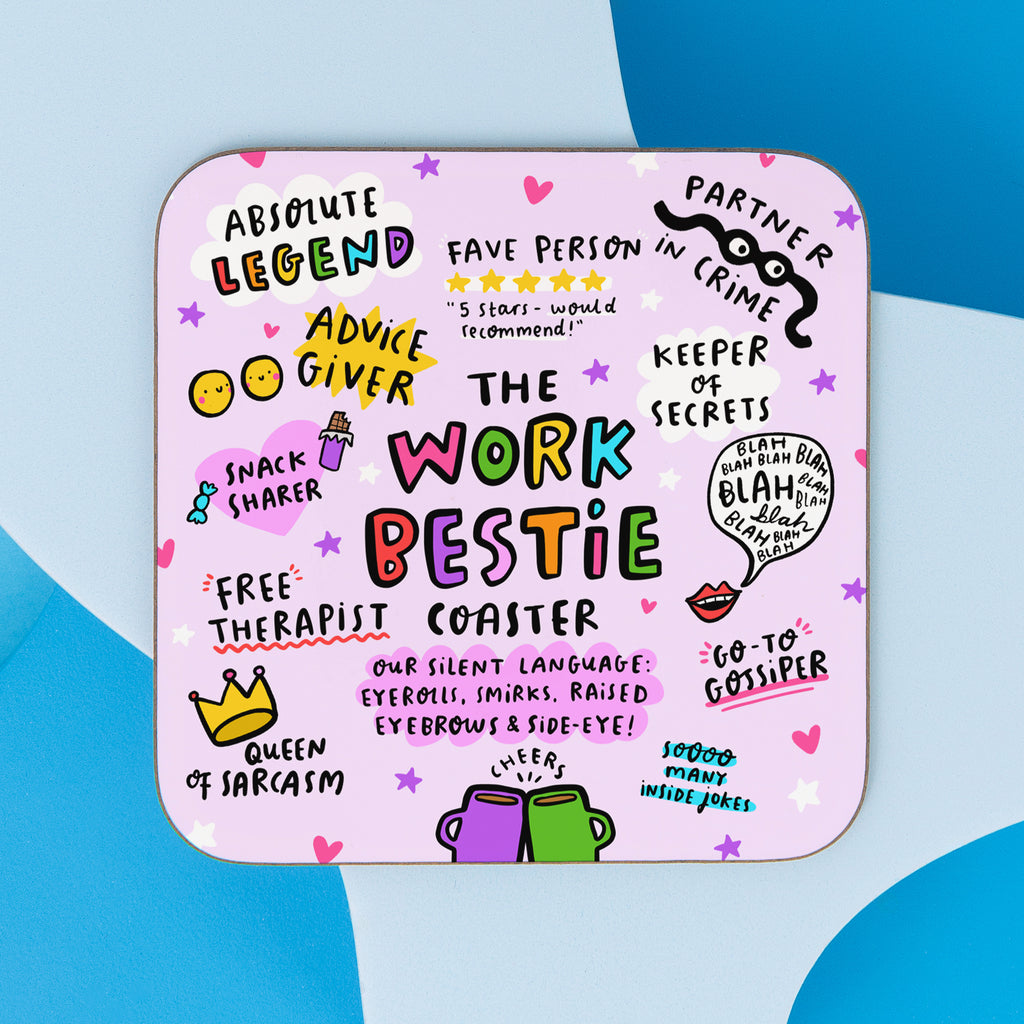 ABSOLUTE
LEGEND
FAVE PERSON
"5 stars - would
recommend!"
PARTNER
iN CRiME
ADViCE
GiVER
KEEPER
OF
SECRETS
THE
WORK
BESTiE
COASTER
SNACK
SHARER
BLAH
BLAH BLAH BLAH
BLAH BLAH
BLAH
blah
BLAH BLAH
BLAH
FREE
THERAPiST
OUR SiLENT LANGUAGE:
EYEROLLS, SMiRKS, RAiSED
EYEBROWS & SiDE-EYE!
GO-TO
GOSSiPER
QUEEN
OF SARCASM
CHEERS
SOOOO
MANY
INSiDE JOKES